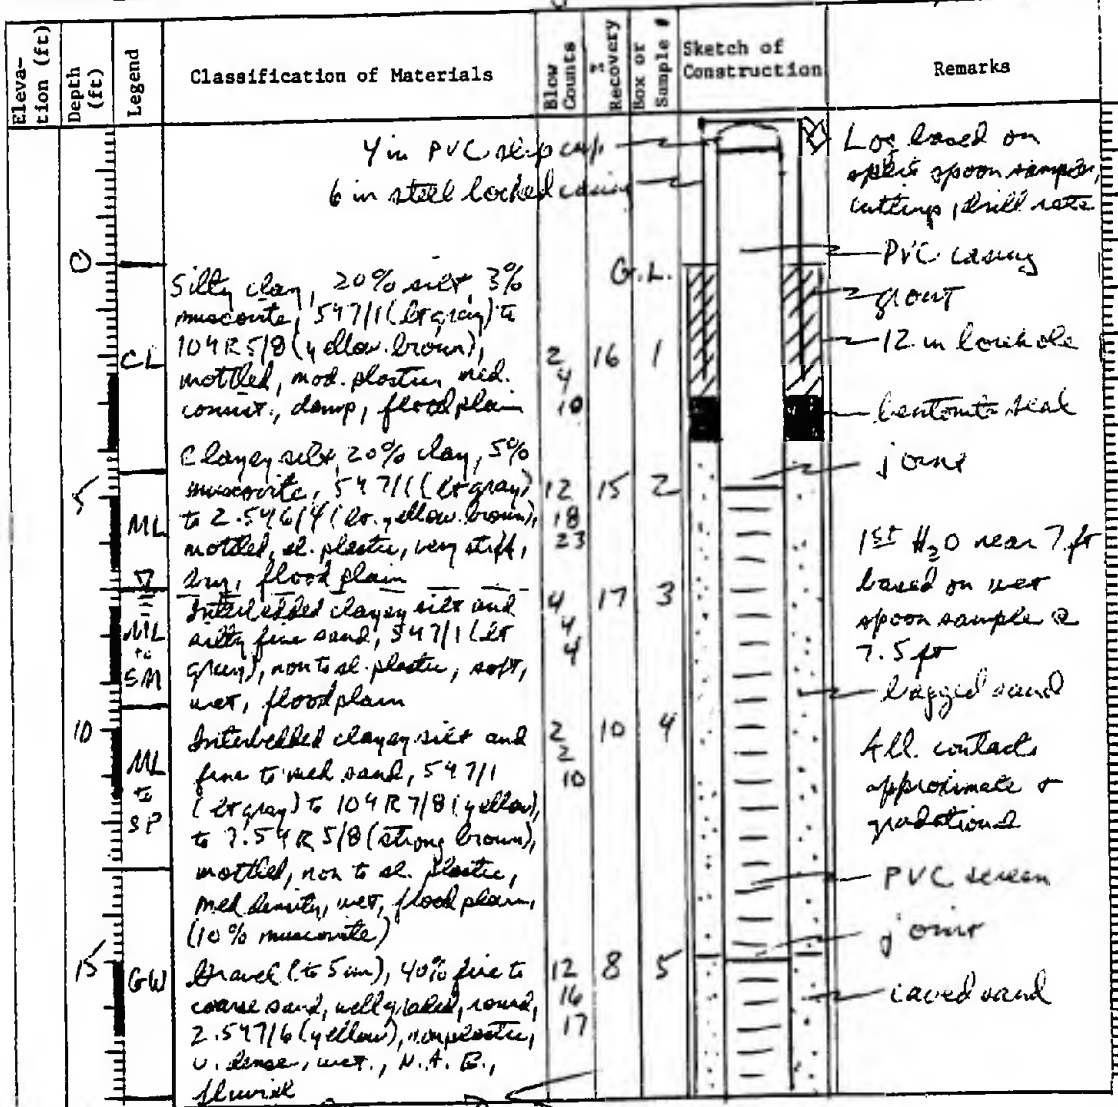 Eleva-
tion (ft)
Depth
(ft)
Legend
Classification of Materials
Blow
Counts
Recovery
Box or
Sample #
Sketch of
Construction
Remarks
4 in PVC slip cap
6 in steel locked casing
Log based on
split spoon samples,
cuttings, drill rate
PVC casing
0
G.L.
grout
Silty clay, 20% silt, 3%
muscovite, 5Y7/1 (lt gray) to
10YR 5/8 (yellow. brown),
mottled, mod. plastic, med.
consist., damp, flood plain
CL
2
4
10
16
1
12 in borehole
bentonite seal
Clayey silt, 20% clay, 5%
muscovite, 5Y7/1 (lt gray)
to 2.5Y6/4 (lt. yellow. brown),
mottled, sl. plastic, very stiff,
dry, flood plain
5
ML
12
18
23
15
2
joint
1st H2O near 7 ft
based on wet
spoon sample @
7.5 ft
Interbedded clayey silt and
silty fine sand, 5Y7/1 (lt
gray), non to sl. plastic, soft,
wet, floodplain
ML
to
SM
4
4
4
17
3
bagged sand
10
Interbedded clayey silt and
fine to med sand, 5Y7/1
(lt gray) to 10YR 7/8 (yellow),
to 7.5YR 5/8 (strong brown),
mottled, non to sl. plastic,
med density, wet, flood plain,
(10% muscovite)
ML
to
SP
2
2
10
10
4
All contacts
approximate &
gradational
PVC screen
joint
15
GW
Gravel (to 5 cm), 40% fine to
coarse sand, well graded, round,
2.5Y7/6 (yellow), nonplastic,
v. dense, wet., N.A.E.,
fluvial
12
16
17
8
5
caved sand